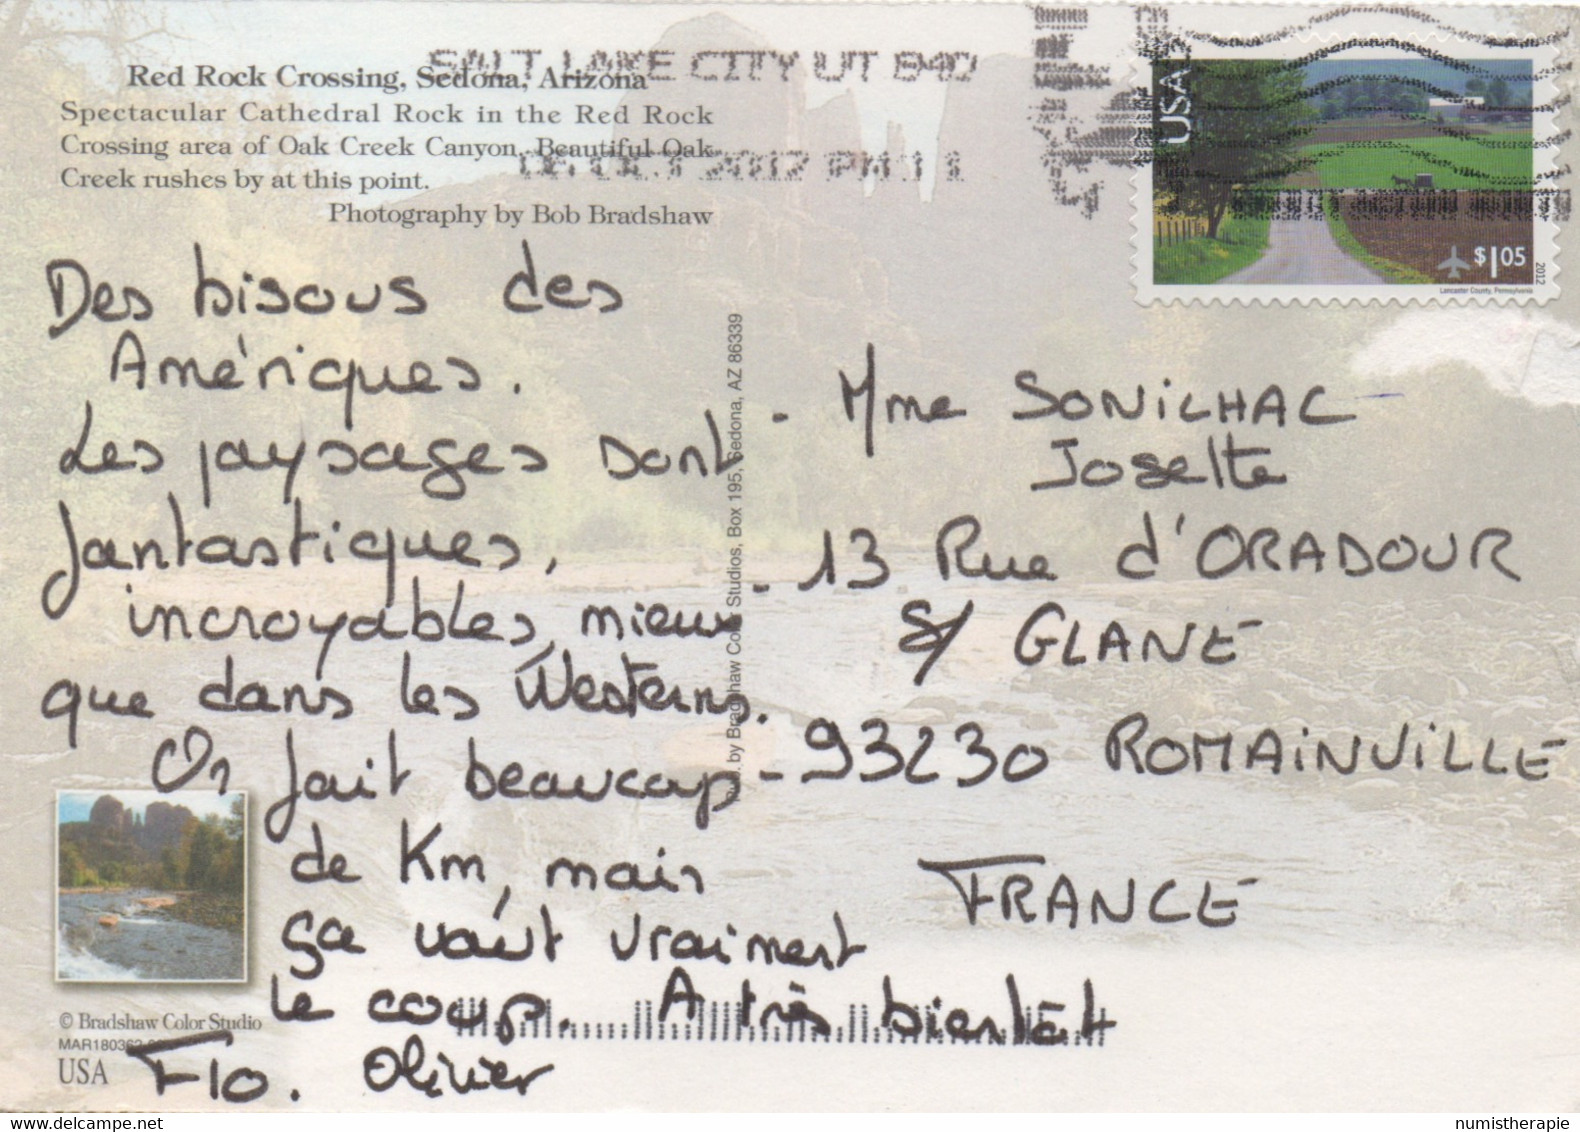 SALT LAKE CITY UT 840
Red Rock Crossing, Sedona, Arizona
Spectacular Cathedral Rock in the Red Rock
Crossing area of Oak Creek Canyon. Beautiful Oak
Creek rushes by at this point.
Photography by Bob Bradshaw
2012 PM 11
USA
$1.05
2012
Lancaster County, Pennsylvania
Des bisous des
Amériques.
Les paysages sont
fantastiques,
incroyables, mieux
que dans les Westerns.
On fait beaucoup
de Km, mais
ça vaut vraiment
le coup. A très bientôt
Flo. Olivier
by Bradshaw Color Studios, Box 195, Sedona, AZ 86339
- Mme SONILHAC
Josette
- 13 Rue d'ORADOUR
S/ GLANE
- 93230 ROMAINVILLE
FRANCE
© Bradshaw Color Studio
MAR180362
USA
www.delcampe.net
numistherapie